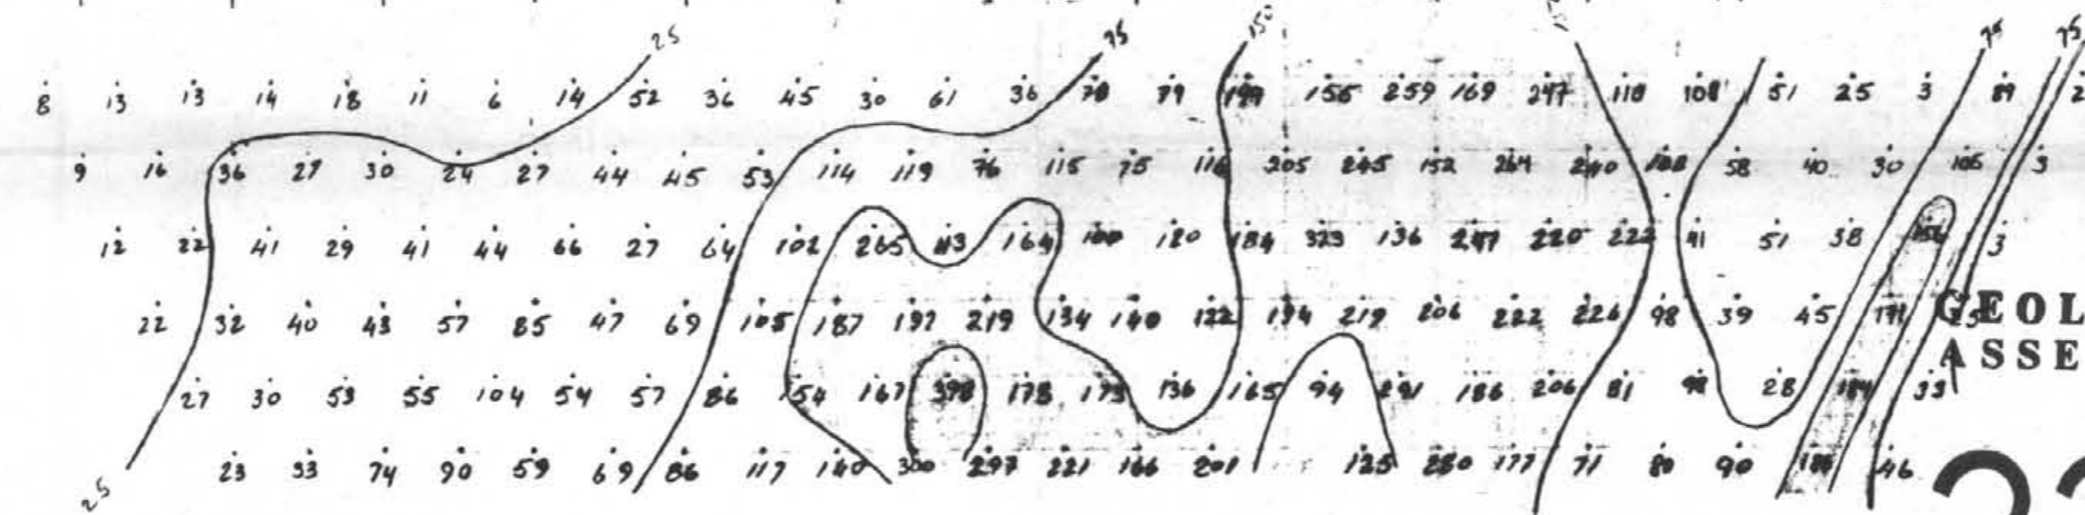 25 75 150 75 75
8 13 13 14 18 11 6 14 52 36 45 30 61 36 78 79 199 155 259 169 247 118 108 51 25 3 89 2
9 16 36 27 30 24 27 44 45 53 114 119 76 115 75 116 205 245 152 264 240 108 58 40 30 105 3
12 22 41 29 41 44 66 27 64 102 265 113 164 100 120 184 323 136 247 220 222 91 51 38 156 3
22 32 40 43 57 85 47 69 105 187 192 219 134 140 122 194 219 206 222 226 98 39 45 171
GEOL
27 30 53 55 104 54 57 86 154 167 398 178 173 136 165 94 291 186 206 81 98 28 184 33
ASSE
23 33 74 90 59 69 86 117 140 300 297 221 166 201 125 280 177 71 80 90 186 46
25